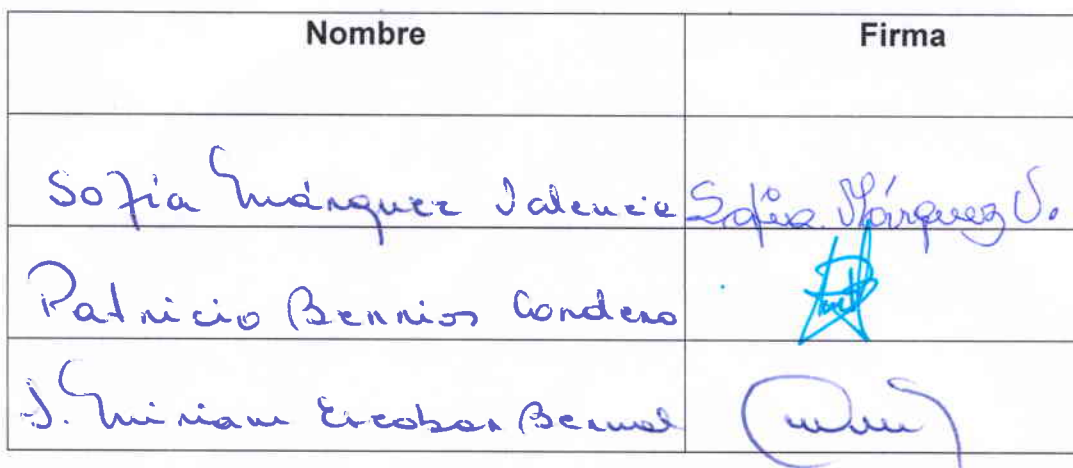 Nombre Firma
Sofia Márquez Valencia Sofia Márquez V.
Patricio Berrios Cordero
J. Miriam Escobar Bernal